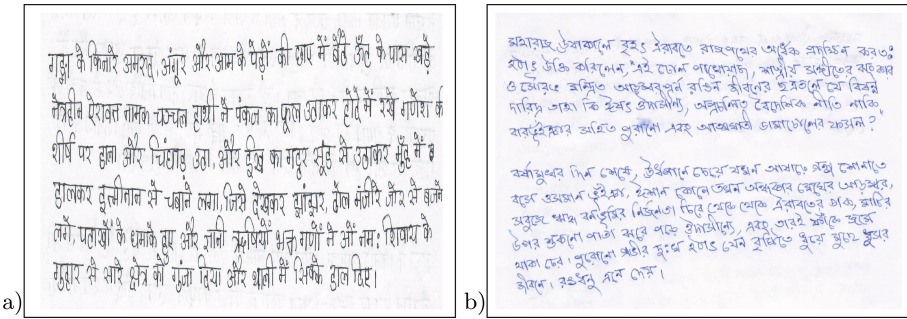 a)
गङ्गा के किनारे अमरूद, अंगूर और आम के पेड़ों की छाप में बैठे ऊँट के पास खड़े
नेत्रहीन ऐरावत नामक चञ्चल हाथी ने पंकज का फूल उठाकर हौदे में रखे गणेश के
शीर्ष पर डाला और चिंघाड़ उठा, और ईख का गट्ठर सूंड से उठाकर मुँह में
डालकर इत्मीनान से चबाने लगा, जिसे देखकर झांझर, ढोल मंजीरे जोर से बजने
लगे, पटाखों के धमाके हुए और ज्ञानी ऋषियों भक्त गणों ने ओं नमः शिवाय के
गुहार से सारे क्षेत्र को गुंजा दिया और थाली में सिक्के डाल दिए।
b)
মহারাজ উষাকালে বৃহৎ ঐরাবতে রাজপথের অর্ধেক প্রদক্ষিন করতঃ
হঠাৎ উক্তি করিলেন, "এই ঢোল পাখোয়াজ, শাস্ত্রীয় সঙ্গীতের ঝঙ্কার
ও সৌরভ মন্দ্রিত আড়ম্বরপূর্ন রঙিন জীবনের ছত্রতলে যে বিষন্ন
দারিদ্র তাহা কি ঈষৎ ঔদাসীন্য, অপ্রচলিত বৈদেশিক নীতি নাকি
বারভুঁইঞার সহিত পুরানো এবং আত্মঘাতী ডামাডোলের ফসল?"
বর্ষামুখর দিন শেষে, ঊর্ধ্বপানে চেয়ে যখন আষাঢ়ে গল্প শোনাতে
বসে ওসমান ভুঁইঞা, ঈশান কোনে তখন অন্ধকার মেঘের আড়ম্বর,
সবুজে ঋদ্ধ বনভূমির নির্জনতা চিরে থেকে থেকে ঐরাবতের ডাক, মাটির
উপর শুকনো পাতা ঝরে পড়ে ঔদাসীন্যে, এবং তারই ফাঁকে জমে
থাকা ঢের পুরোনো গভীর দুঃখ হঠাৎ যেন বৃষ্টিতে ধুয়ে মুছে ধূসর
জীবনে রঙধনু এনে দেয়।